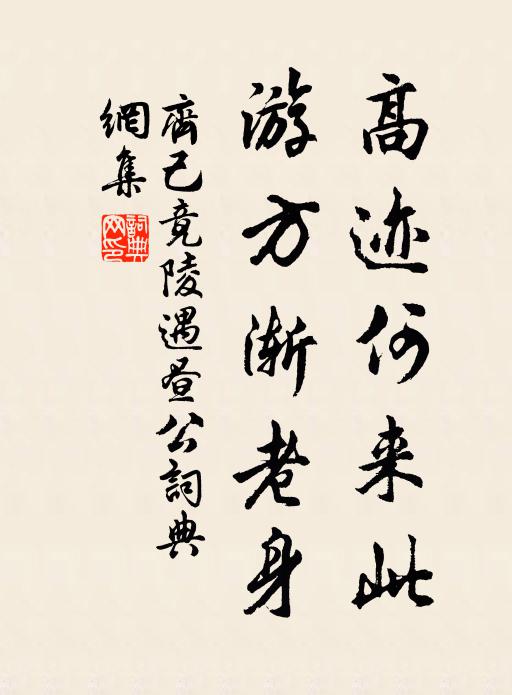 高迹何来此
游方渐老身
齊己竟陵遇昼公詞典
網集
詞典
网印